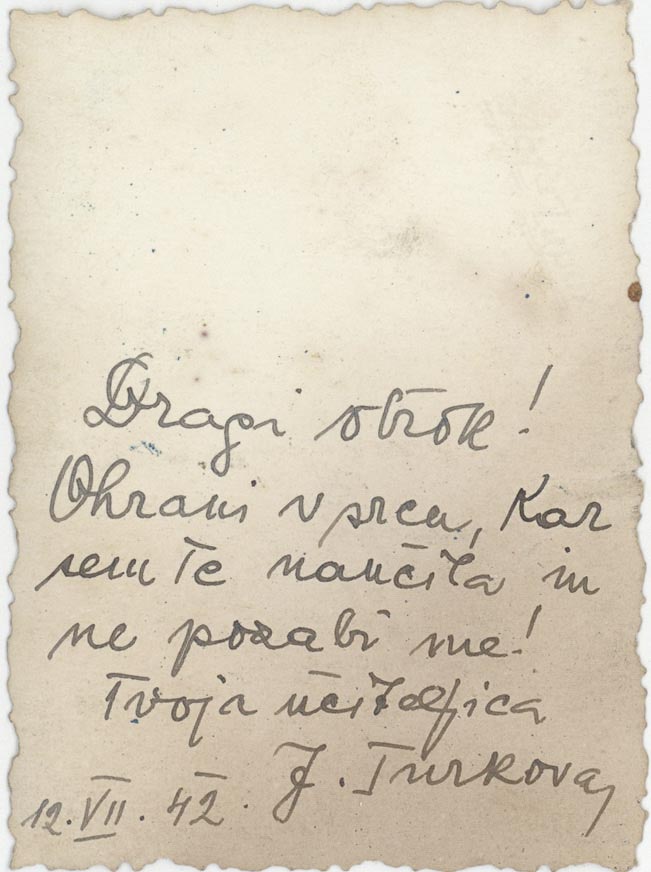 Dragi otrok!
Ohrani v srcu, kar
sem te naučila in
ne pozabi me!
Tvoja učiteljica
J. Turkova,
12. VII. 42.